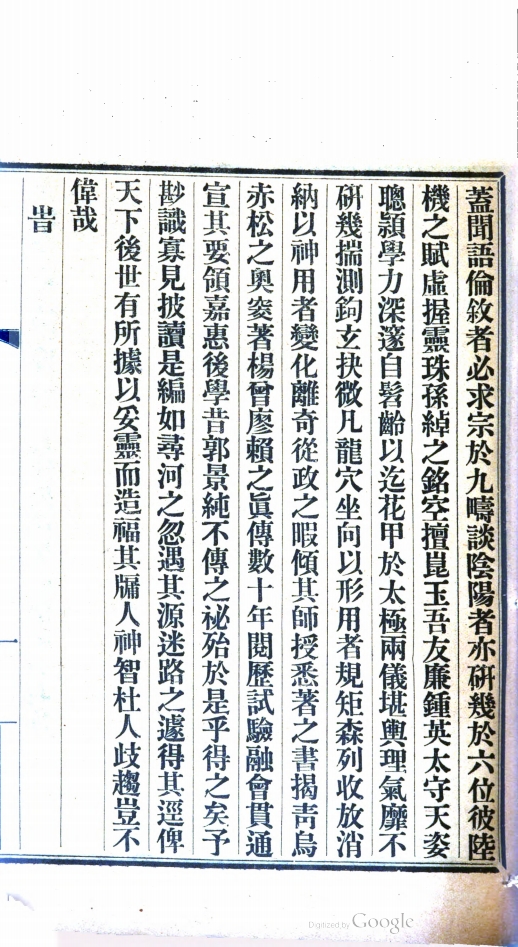 蓋聞語倫敘者必求宗於九疇談陰陽者亦研幾於六位彼陸
機之賦虛握靈珠孫綽之銘空擅崑玉吾友廉鍾英太守天姿
聰穎學力深邃自髫齡以迄花甲於太極兩儀堪輿理氣靡不
研幾揣測鉤玄抉微凡龍穴坐向以形用者規矩森列收放消
納以神用者變化離奇從政之暇傾其師授悉著之書揭青烏
赤松之奧窔著楊曾廖賴之眞傳數十年閱歷試驗融會貫通
宣其要領嘉惠後學昔郭景純不傳之祕殆於是乎得之矣予
尠識寡見披讀是編如尋河之忽遇其源迷路之遽得其逕俾
天下後世有所據以妥靈而造福其牖人神智杜人歧趨豈不
偉哉
旹
Digitized by Google